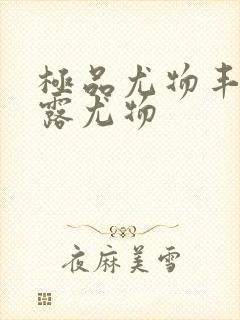 極品尤物丰
露尤物
夜麻美雪